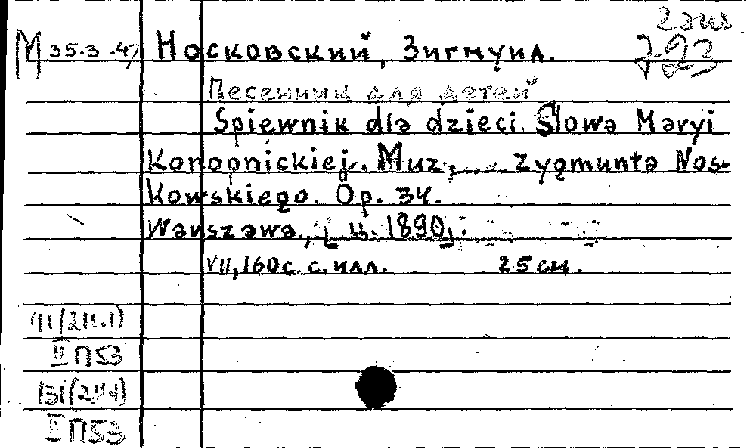 2 экз
М 35-3-47 Носковский, Зигмунд.
Песенник для детей
Spiewnik dla dzieci. Slowa Maryi
Konopnickiej. Muz. ... Zygmunta Nos-
kowskiego. Op. 34.
Warszawa, [ц. 1890].
VII, 160 с. с илл. 25 см.
II П53
II П53